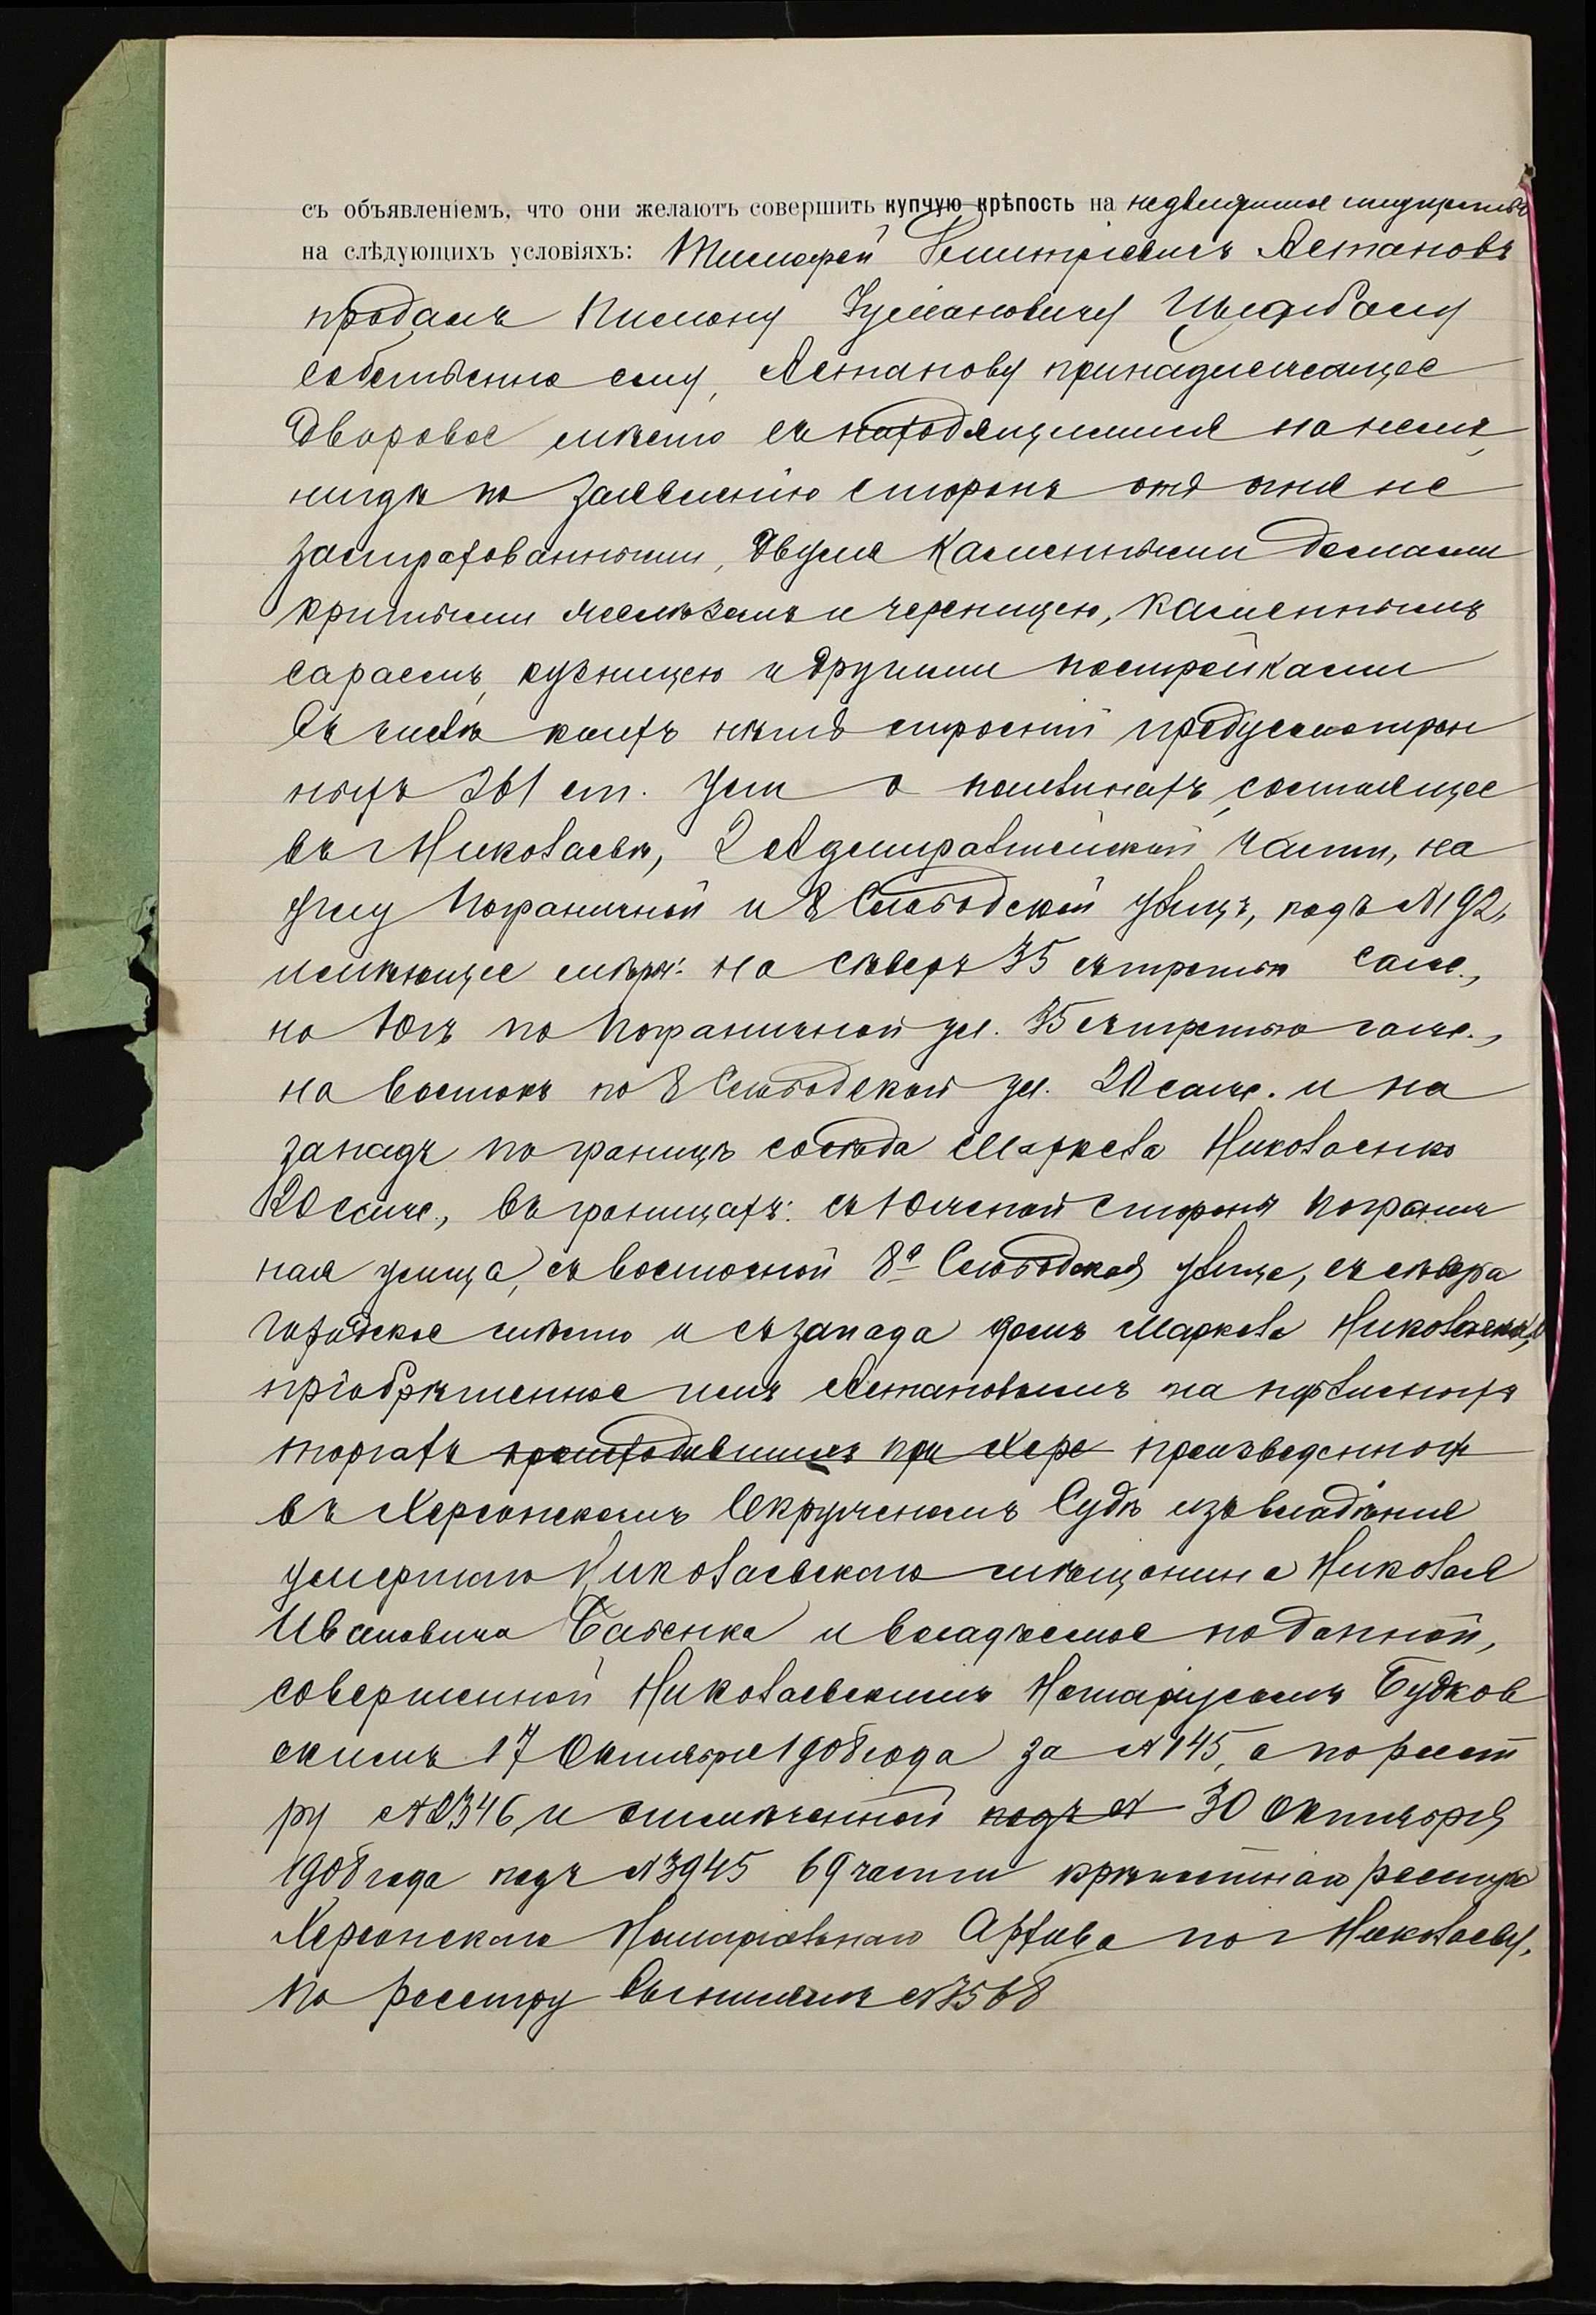 съ объявленіемъ, что они желаютъ совершить купчую крѣпость на недвижимое имущество
на слѣдующихъ условіяхъ: Тимофей Дмитріевичъ Астаховъ
продалъ Пимону
собственно ему, Астахову принадлежащее
дворовое мѣсто съ находящимися на немъ,
нигдѣ по заявленію сторонъ отъ огня не
застрахованными, двумя каменными домами
крытыми желѣзомъ и черепицею, каменнымъ
сараемъ, кузницею и другими постройками
въ числѣ коихъ нѣтъ строеній предусмотрѣн
ныхъ 261 ст. Уст. о пошлинахъ, состоящее
въ Николаевѣ, 2 Адмиралтейской части, на
углу Пограничной и 8 Слободской улицъ, подъ №192,
имѣющее мѣры: на сѣверъ 35 съ третью саж.,
на Югъ по Пограничной ул. 35 съ третью саж.,
на востокъ по 8 Слободской ул. 20 саж. и на
западъ по границѣ сосѣда Маркела Николаенко
20 саж., въ границахъ: съ Южной стороны Погранич
ная улица, съ восточной 8ª Слободская улица, съ сѣвера
городское мѣсто и съ запада домъ Маркела Николаенко,
пріобрѣтенное имъ Астаховымъ на публичныхъ
торгахъ происходившихъ при Херс произведенныхъ
въ Херсонскомъ Окружномъ Судѣ изъ владѣнія
умершаго Николаевскаго мѣщанина Николая
Ивановича и владѣемое по данной,
совершенной Николаевскимъ Нотаріусомъ Будков
скимъ 17 Октября 1908 года за №145, а по реест
ру №2346, и отмѣченной подъ № 30 Октября
1908 года подъ №3945 69 части крѣпостнаго реестра
Херсонскаго Нотаріальнаго Архива по г Николаеву,
по реестру №3568